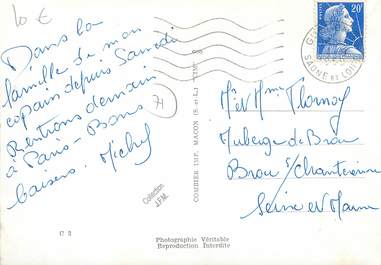 10 €
Dans la
famille de mon
copain depuis Samedi
Rentrons demain
à Paris - Bons
baisers. Michel
71
Collection
J.P.M.
COMBIER IMP. MACON (S.-et-L.)
20F
SAONE ET LOIRE
Mr et Mme Flornoy
Auberge de Brou
Brou s/ Chantereine
Seine et Marne
C 3
Photographie Véritable
Reproduction Interdite